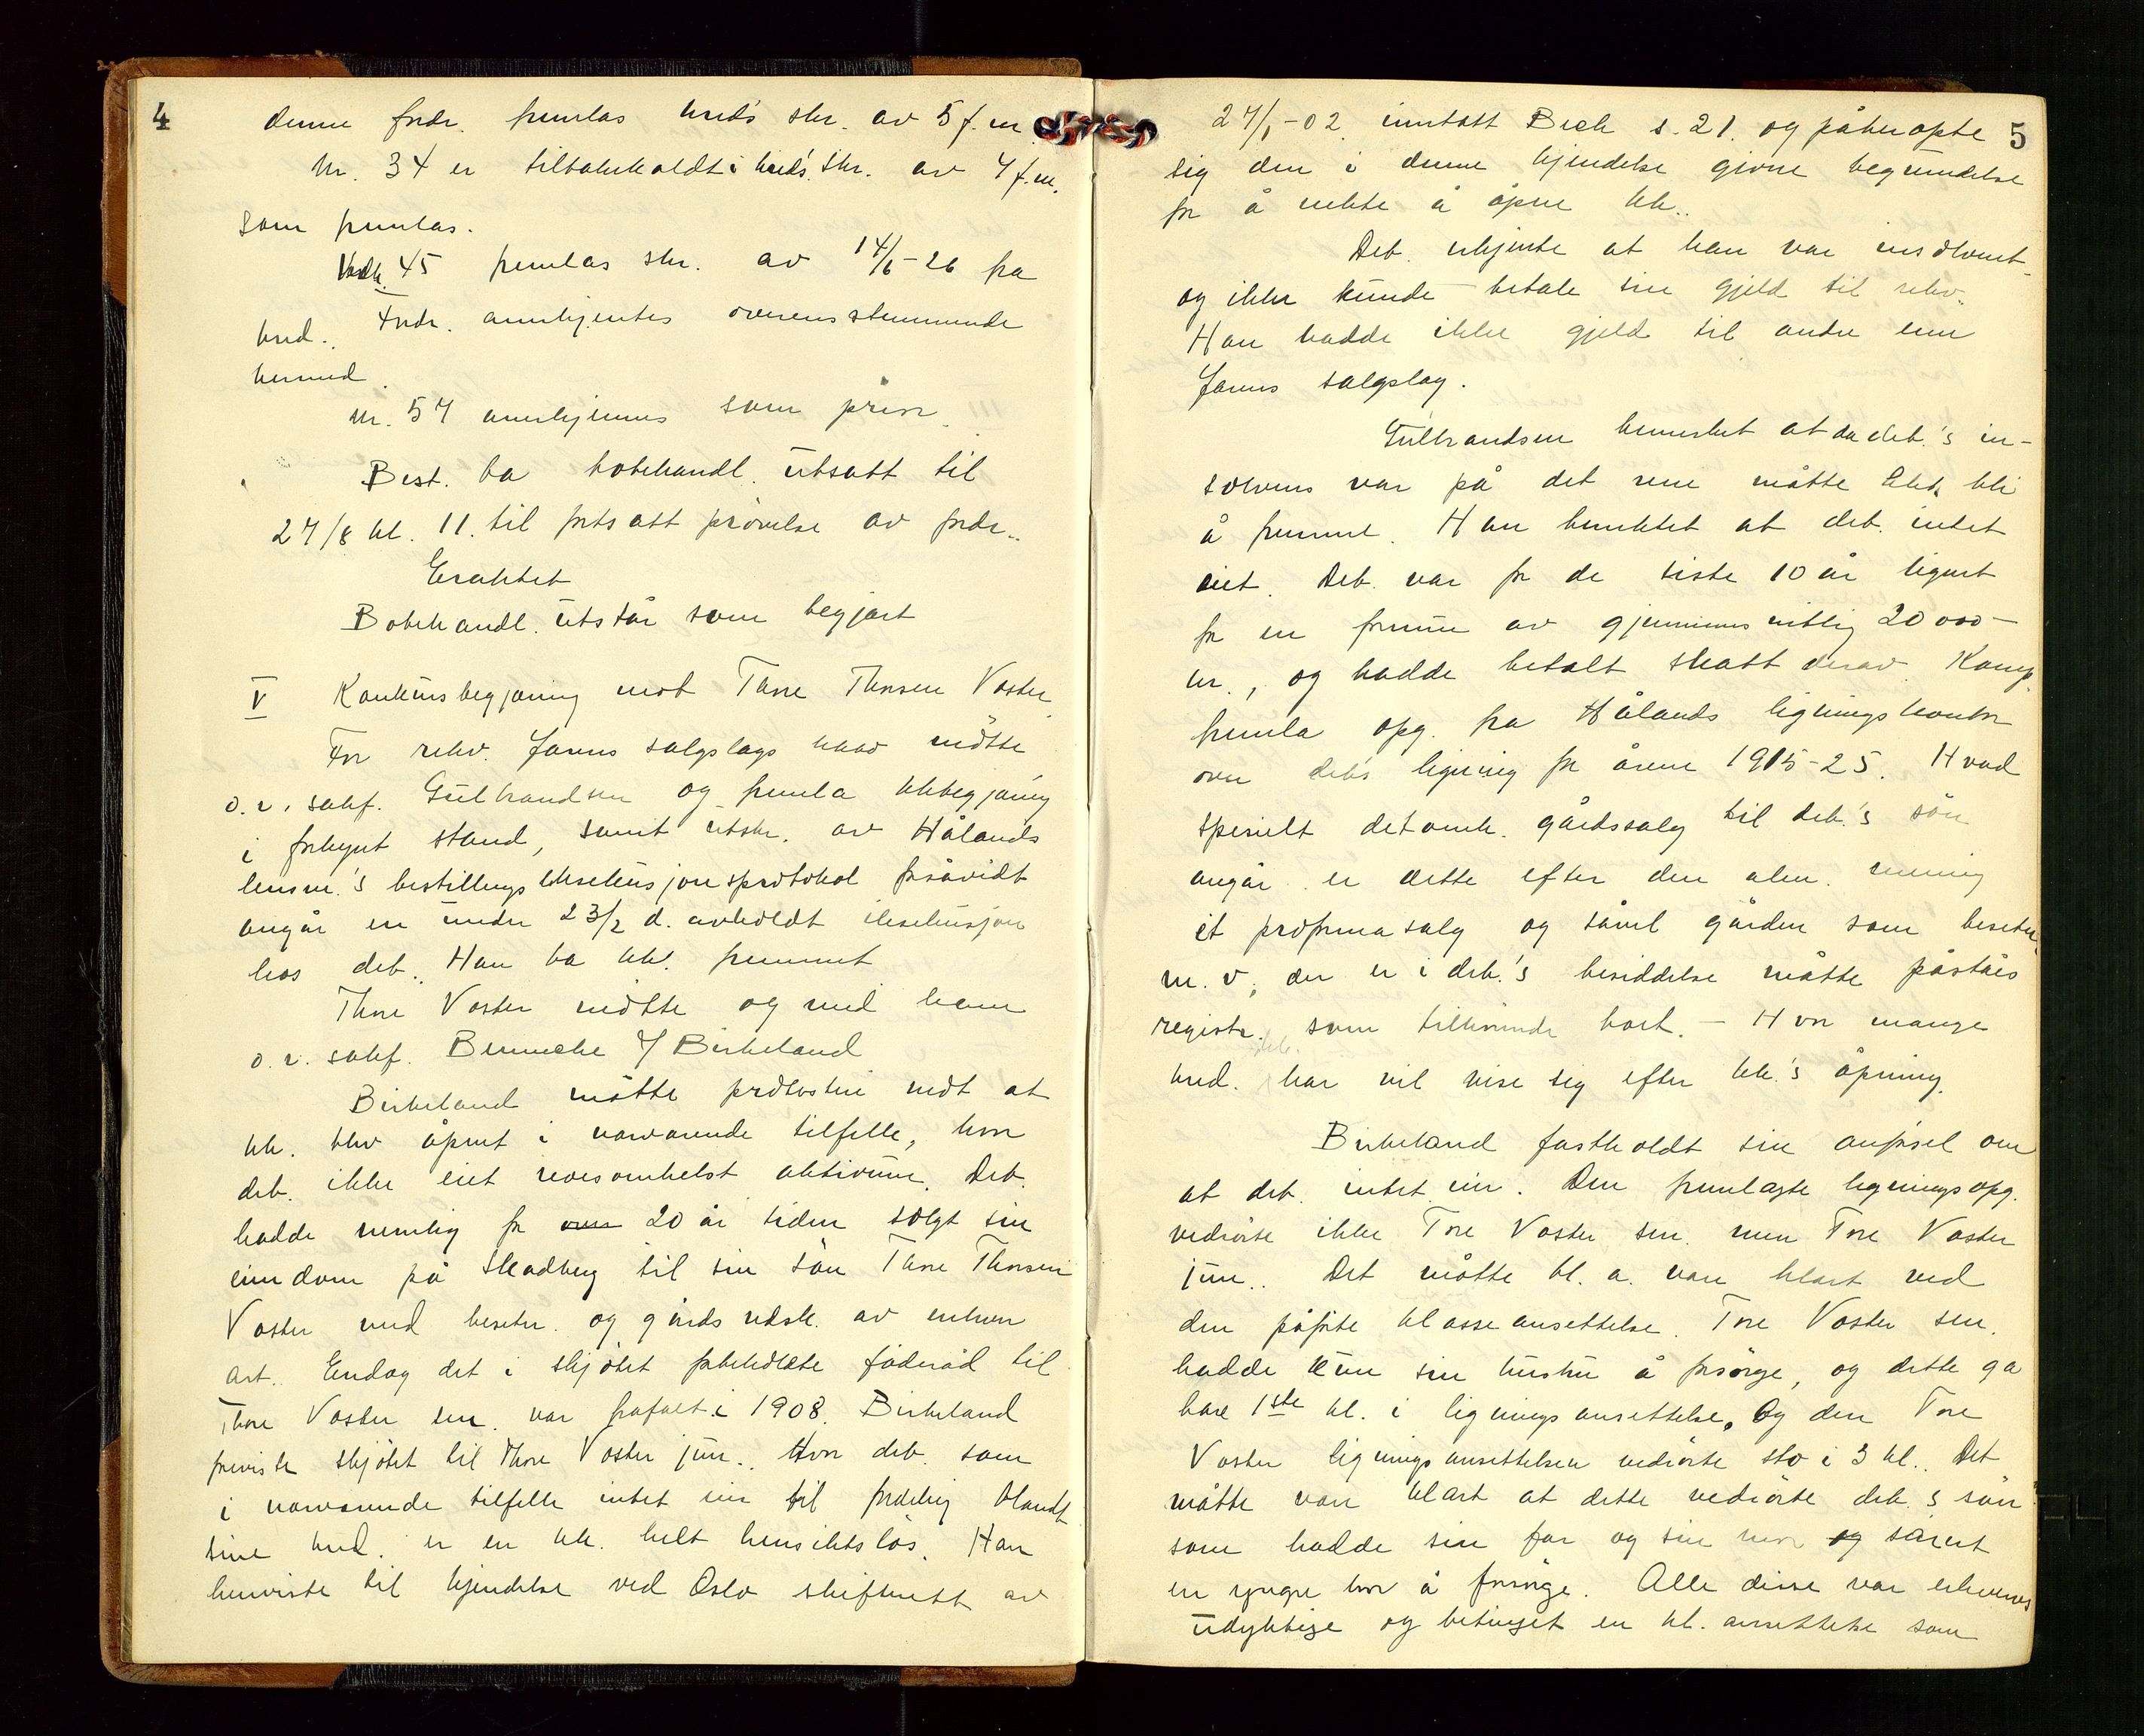 4
denne fordr. fremlas kred's skr. av 5 f.m.
Nr. 34 er tilbakeholdt i kred's. skr. av 4 f.m.
som fremlas.
Vedk. 45 fremlas skr. av 14/6-26 fra
kred. Fordr. anerkjentes overensstemmende
hermed.
Nr. 57 anerkjennes som prior.
Best. ba bobehandl. utsatt til
27/8 kl. 11. til fortsatt prövelse av fordr..
Eraktet
Bobehandl. utstår som begjært
V Konkursbegjæring mot Thore Thorsen Vaster
For rekv. Jærens salgslags hadd mötte
o.r. sakf. Gulbrandsen og fremla kkbegjæring
i forkynt stand, samt utskr. av Hålands
lensm.'s bestillings eksekusjonsprotokol forsåvidt
angår en under 23/2 d. avholdt eksekusjon
hos deb. Han ba kk. fremmet
Thore Vaster mötte og med ham
o.r. sakf. Benneche f/ Birkeland
Birkeland måtte protestere mot at
kk. blev åpnet i nærværende tilfelle, hvor
deb. ikke eiet noesomhelst aktivum. Deb.
hadde nemlig for 20 år siden solgt sin
eiendom på Skadberg til sin sön Thore Thorsen
Vaster med besetn. og gårds redsk. av enhver
art. Endog det i skjötet forbeholdte föderåd til
Thore Vaster sen. var frafalt i 1908. Birkeland
foreviste skjötet til Thore Vaster jun.. Hvor deb. som
i nærværende tilfelle intet eier til fordeling blandt
sine kred. er en kk. helt hensiktslös. Han
henviste til kjendelse ved Oslo skifterett av
5
27/1-02. inntatt Beck s. 21. og påberopte
sig den i denne kjendelse givne begrundelse
for å nekte å åpne kk..
Deb. erkjente at han var insolvent
og ikke kunde betale sin gjeld til rekv.
Han hadde ikke gjeld til andre enn
Jærens salgslag.
Gulbrandsen bemerket at da deb.'s in-
solvens var på det rene måtte bli
å fremme. Han benektet at deb. intet
eiet. Deb. var for de siste 10 år lignet
for en formue av gjennemsnitlig 20000-
kr., og hadde betalt skatt derav. Komp.
fremla opg. fra Hålands ligningskontor
over deb's ligning for årene 1915-25. Hvad
spesielt det omh. gårdssalg til deb.'s sön
angår er dette efter den alm. mening
et proformasalg og såvel gården som besetn.
m.v. der er i deb.'s besiddelse måtte påståes
registr. som tilhörende boet. - Hvor mange
kred. deb. har vil vise sig efter kk.'s åpning.
Birkeland fastholdt sin anförsel om
at deb. intet eier. Den fremlagte ligningsopg.
vedrörte ikke Tore Vaster sen. men Tore Vaster
jun.. Det måtte bl. a. være klart ved
den påförte klasseansettelse. Tore Vaster sen.
hadde kun sin hustru å forsörge, og dette ga
bare 1ste kl. i ligningsansettelse. Og den Tore
Vaster ligningsansettelsen vedrörte sto i 3 kl.. Det
måtte være klart at dette vedrörte deb.'s sön
som hadde sin far og sin mor og såvel
en yngre bror å forsörge. Alle disse var erhvervs
udyktige og betinget en kl. ansettelse som